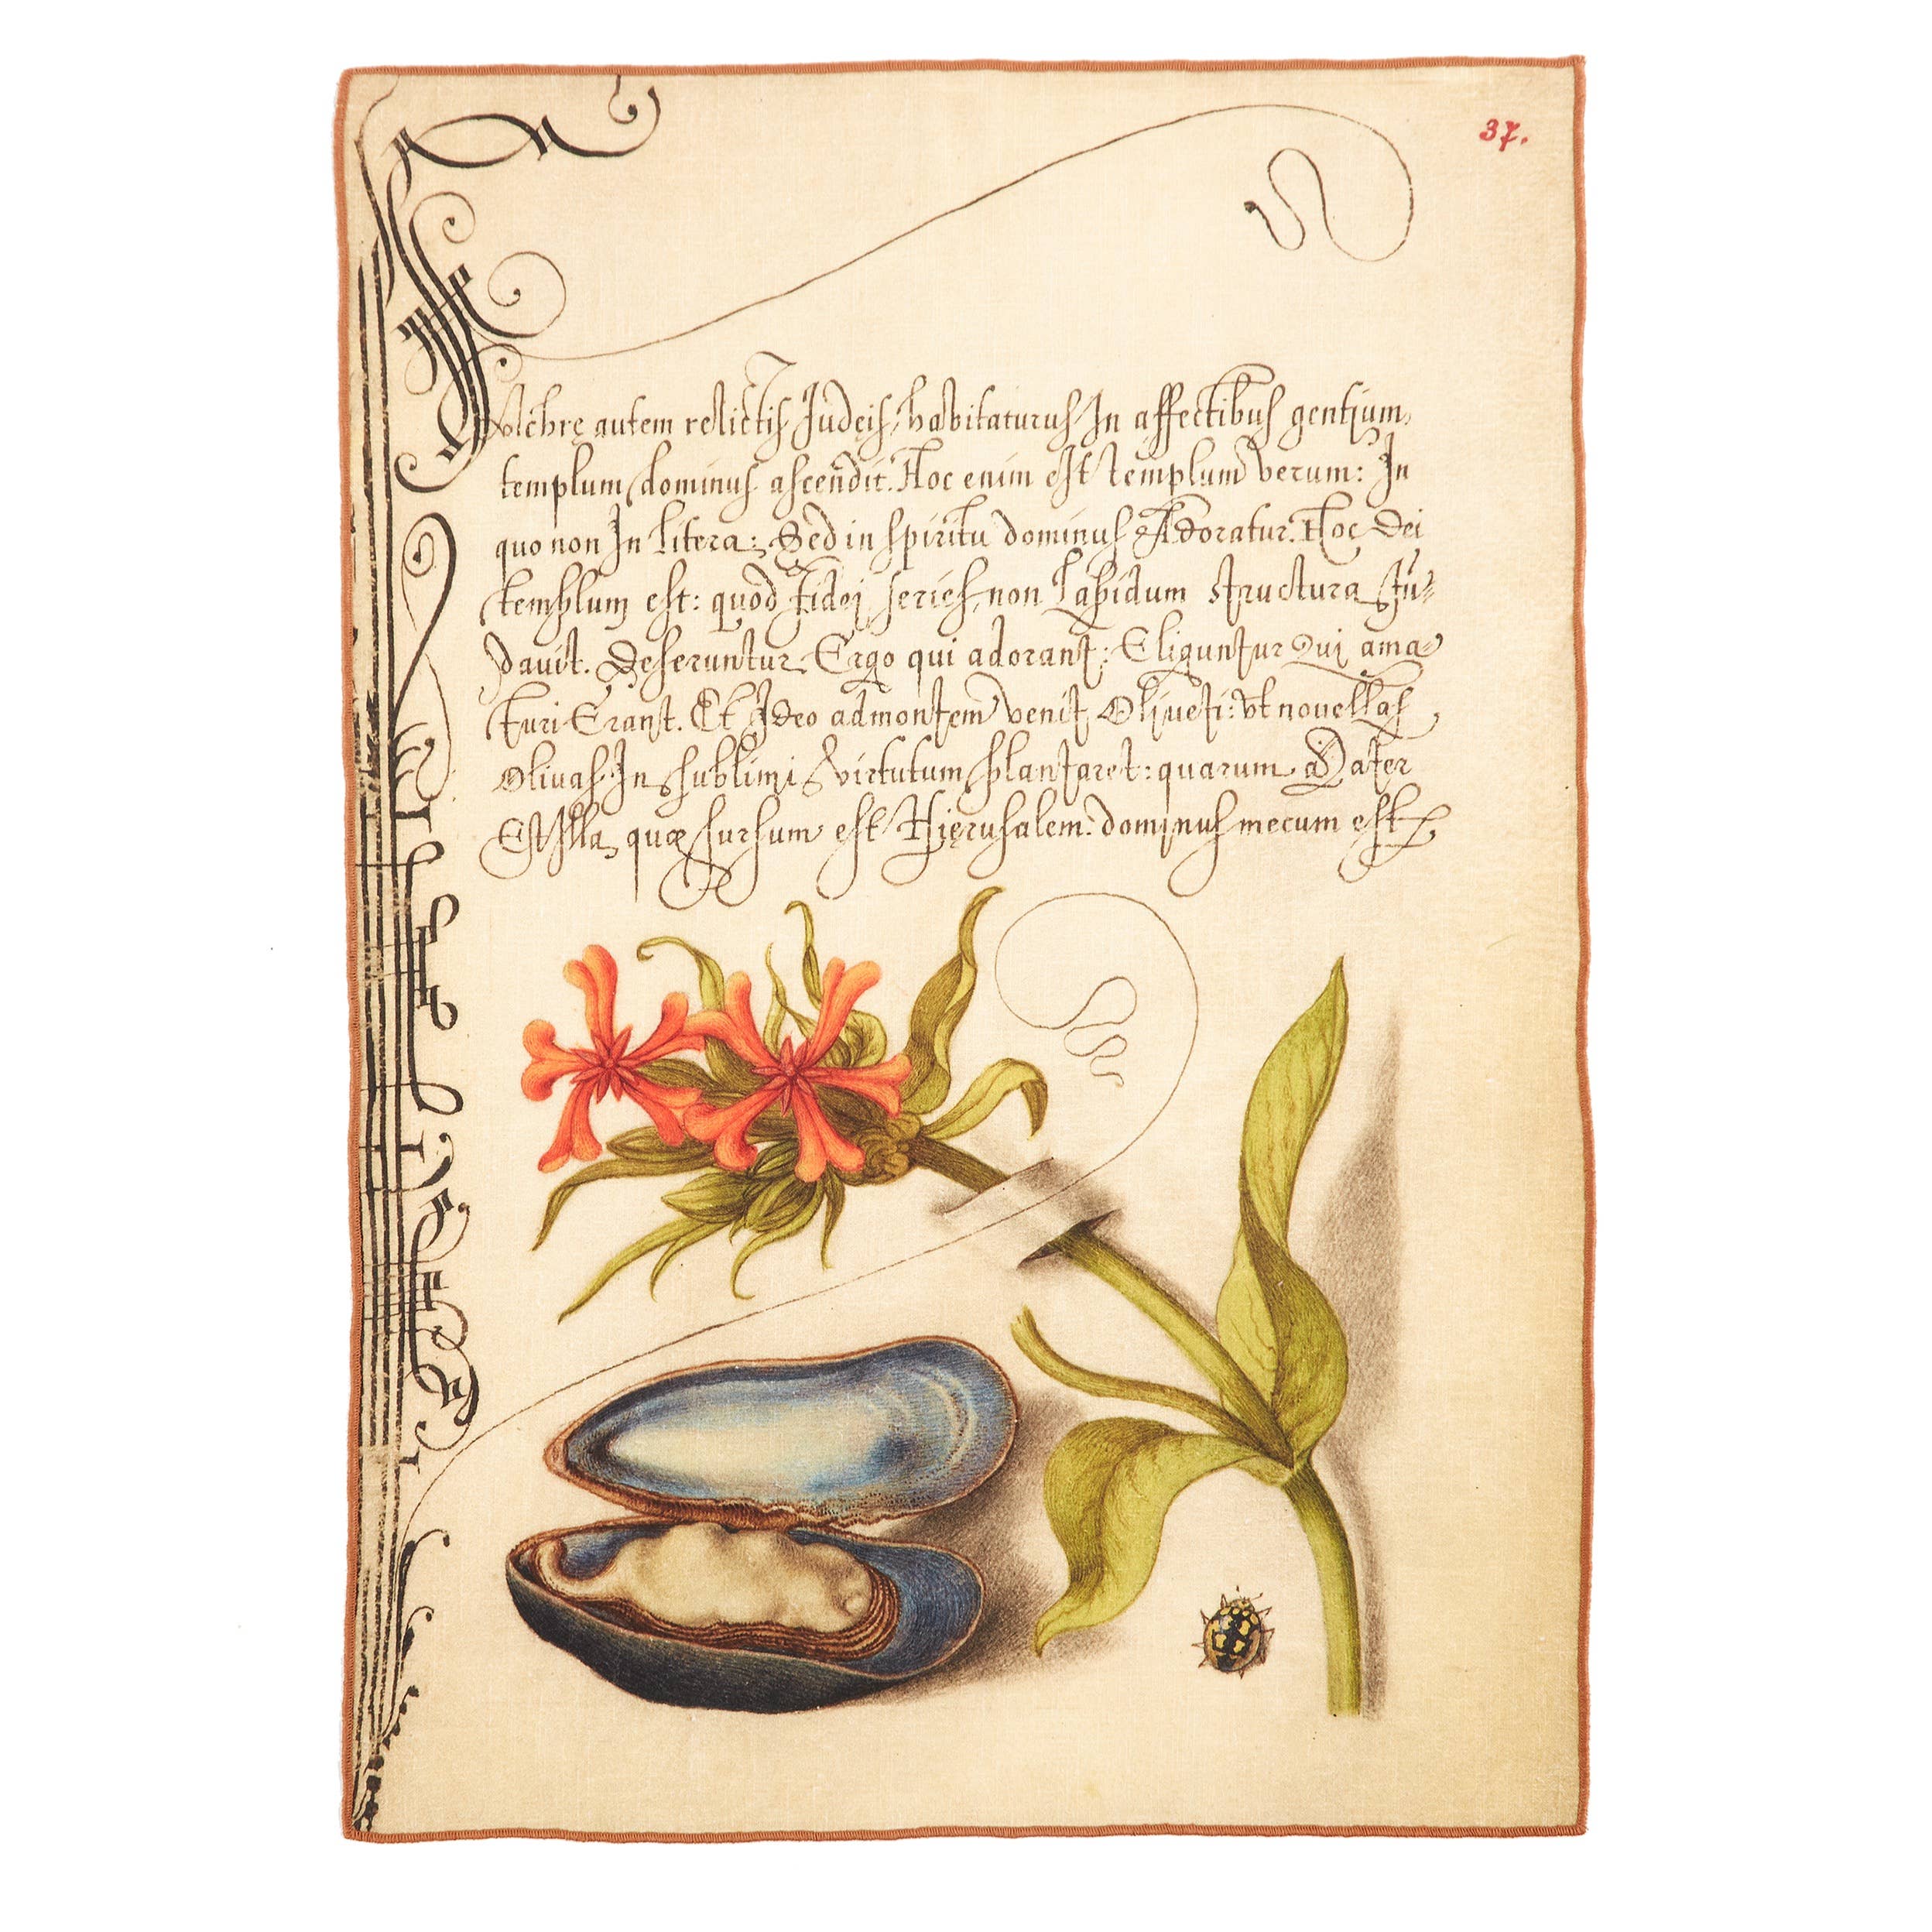 37.
Pulchre autem relictis Iudeis, habitaturus In affectibus gentium,
templum dominus ascendit. Hoc enim est templum verum: In
quo non In litera: Sed in spiritu dominus Adoratur. Hoc Dei
templum est: quod fidei series, non lapidum structura fun=
davit. Deseruntur Ergo qui adorant: Eliguntur Qui ama=
turi Erant. Et Ideo ad montem venit Oliveti: vt nouellas
Olivas In sublimi virtutum plantaret: quarum Mater
Est Illa, quæ sursum est Hierusalem. dominus mecum est